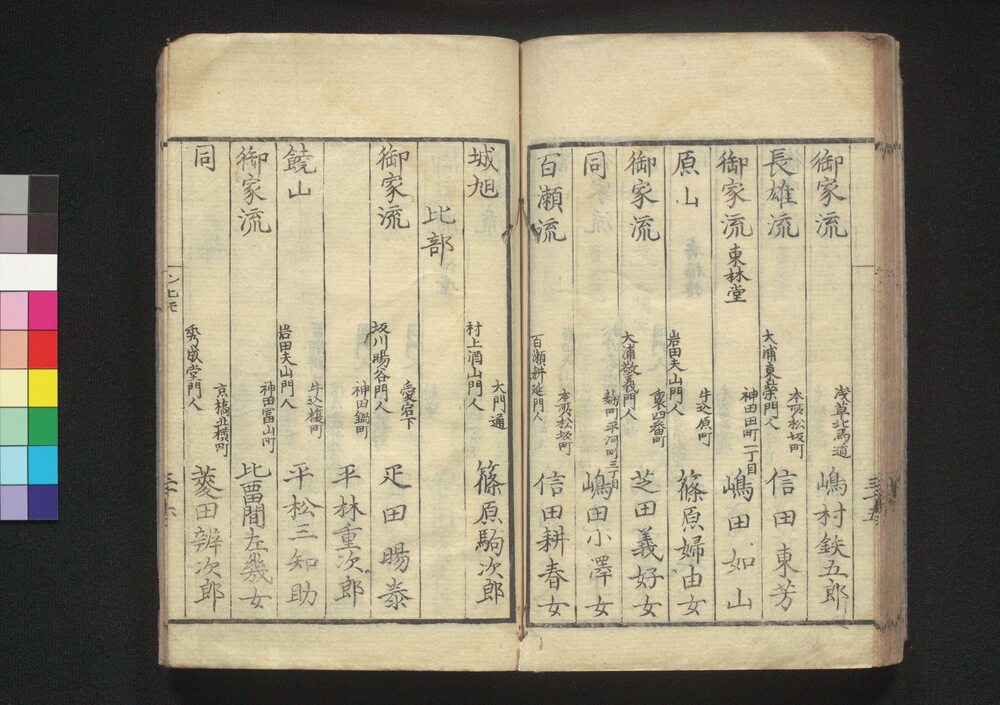 御家流 浅草北馬道 嶋村鉄五郎
長雄流 大浦東榮門人 本所松坂町 信田東芳
御家流 東林堂 神田田町一丁目 嶋田如山
原山 岩田夫山門人 牛込原町 篠原婦由女
御家流 大浦敬義門人 裏四番町 芝田義好女
同 麹町平河町三丁目 嶋田小澤女
百瀬流 百瀬耕延門人 本所松坂町 信田耕春女
城旭 村上酒山門人 大門通 篠原駒次郎
比部
御家流 坂川賜谷門人 愛宕下 疋田賜泰
神田鍋町 平林重次郎
饒山 岩田夫山門人 牛込榎町 平松三知助
御家流 神田冨山町 比留間左幾女
同 秀成堂門人 京橋北横町 菱田辨次郎
シヒモ